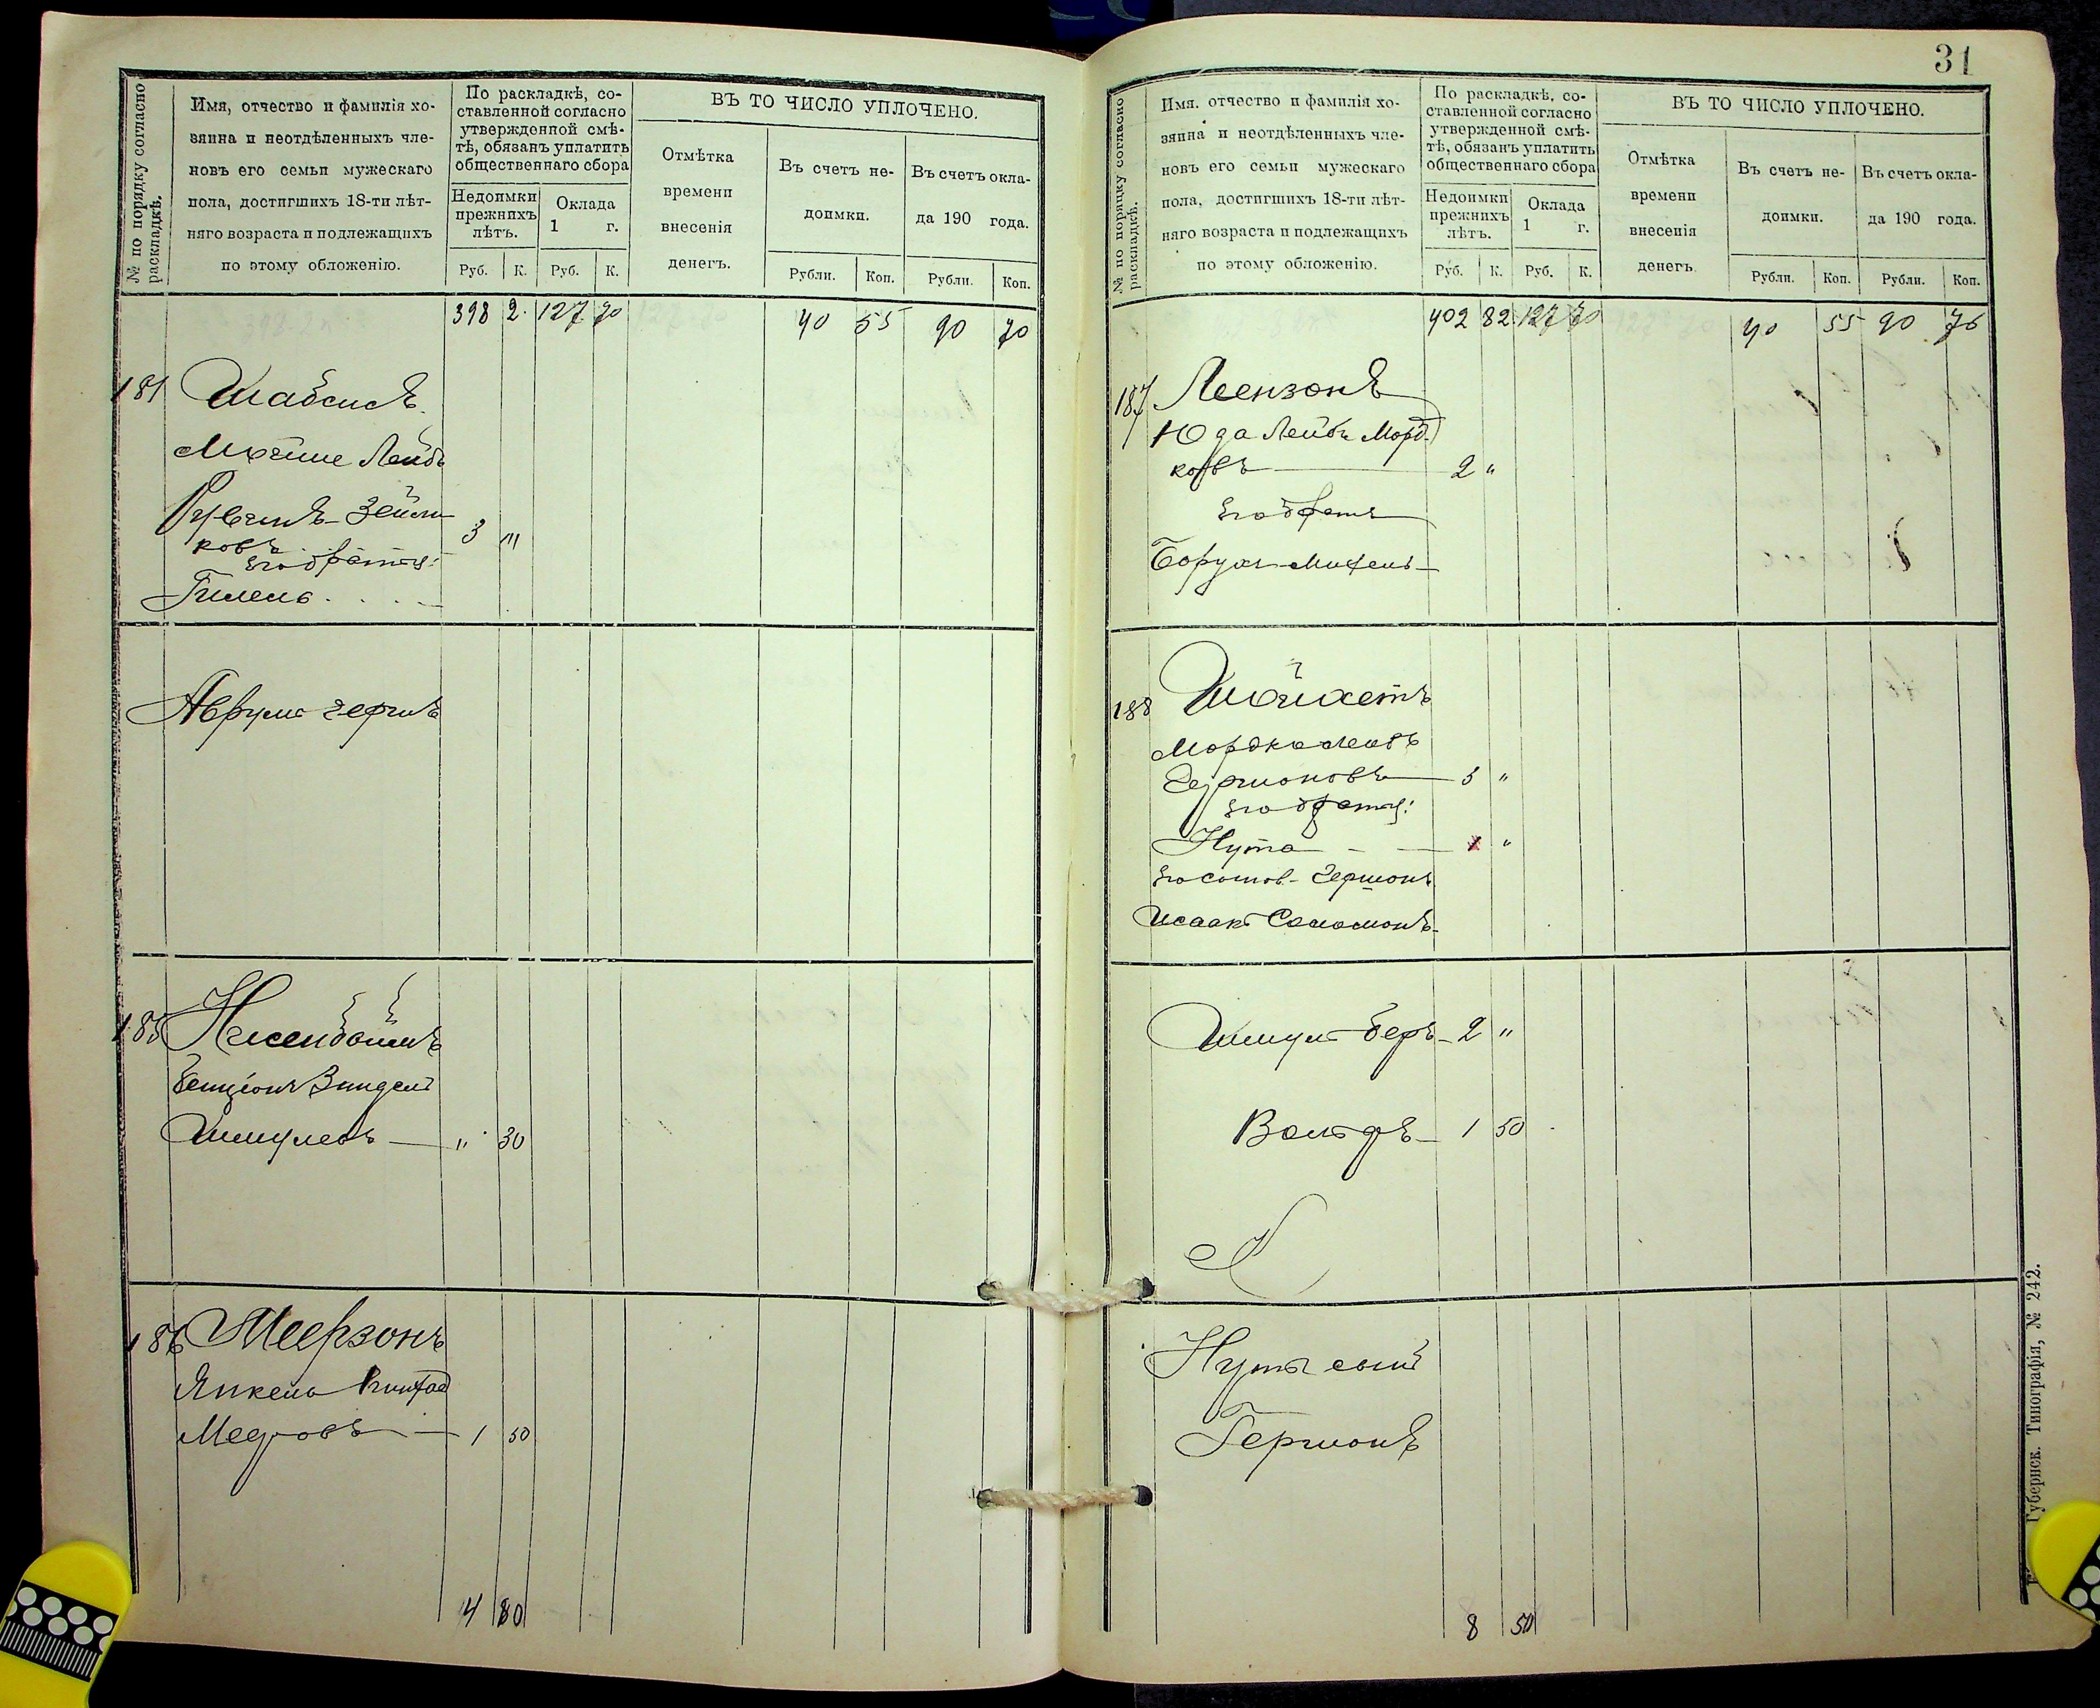 № по порядку согласно раскладкѣ.
Имя, отчество и фамилія хо-
зяина и неотдѣленныхъ чле-
новъ его семьи мужескаго
пола, достигшихъ 18-ти лѣт-
няго возраста и подлежащихъ
по этому обложенію.
По раскладкѣ, со-
ставленной согласно
утвержденной смѣ-
тѣ, обязанъ уплатить
общественнаго сбора
Недоимки
прежнихъ
лѣтъ.
Оклада
1 г.
Руб. К. Руб. К.
ВЪ ТО ЧИСЛО УПЛОЧЕНО.
Отмѣтка
времени
внесенія
денегъ.
Въ счетъ не-
доимки.
Въ счетъ окла-
да 190 года.
Рубли. Коп. Рубли. Коп.
398 2 127 70 40 55 90 70
181 Шабсисъ
Лейбъ
Рувинъ-
ковъ 3 "
его братья:
Гилель
Аврумъ
185
Бенціонъ
Шмулевъ " 30
186 Меерзонъ
Янкель
1 50
4 80
31
№ по порядку согласно раскладкѣ.
Имя, отчество и фамилія хо-
зяина и неотдѣленныхъ чле-
новъ его семьи мужескаго
пола, достигшихъ 18-ти лѣт-
няго возраста и подлежащихъ
по этому обложенію.
По раскладкѣ, со-
ставленной согласно
утвержденной смѣ-
тѣ, обязанъ уплатить
общественнаго сбора
Недоимки
прежнихъ
лѣтъ.
Оклада
1 г.
Руб. К. Руб. К.
ВЪ ТО ЧИСЛО УПЛОЧЕНО.
Отмѣтка
времени
внесенія
денегъ.
Въ счетъ не-
доимки.
Въ счетъ окла-
да 190 года.
Рубли. Коп. Рубли. Коп.
402 82 127 70 40 55 90 70
187 Леензонъ
Юда Лейба Морд-
ковъ 2 "
его братъ
Борухъ-Михель
188 Шойхетъ
Мордко
Гершоновъ 3 "
его братья:
Нута "
его сынов. Гершонъ
Исаакъ Соломонъ
Шмулъ-Беръ 2 "
Вольфъ 1 50
Нуты сынъ
Гершонъ
8 50
Губернск. Типографія, № 242.